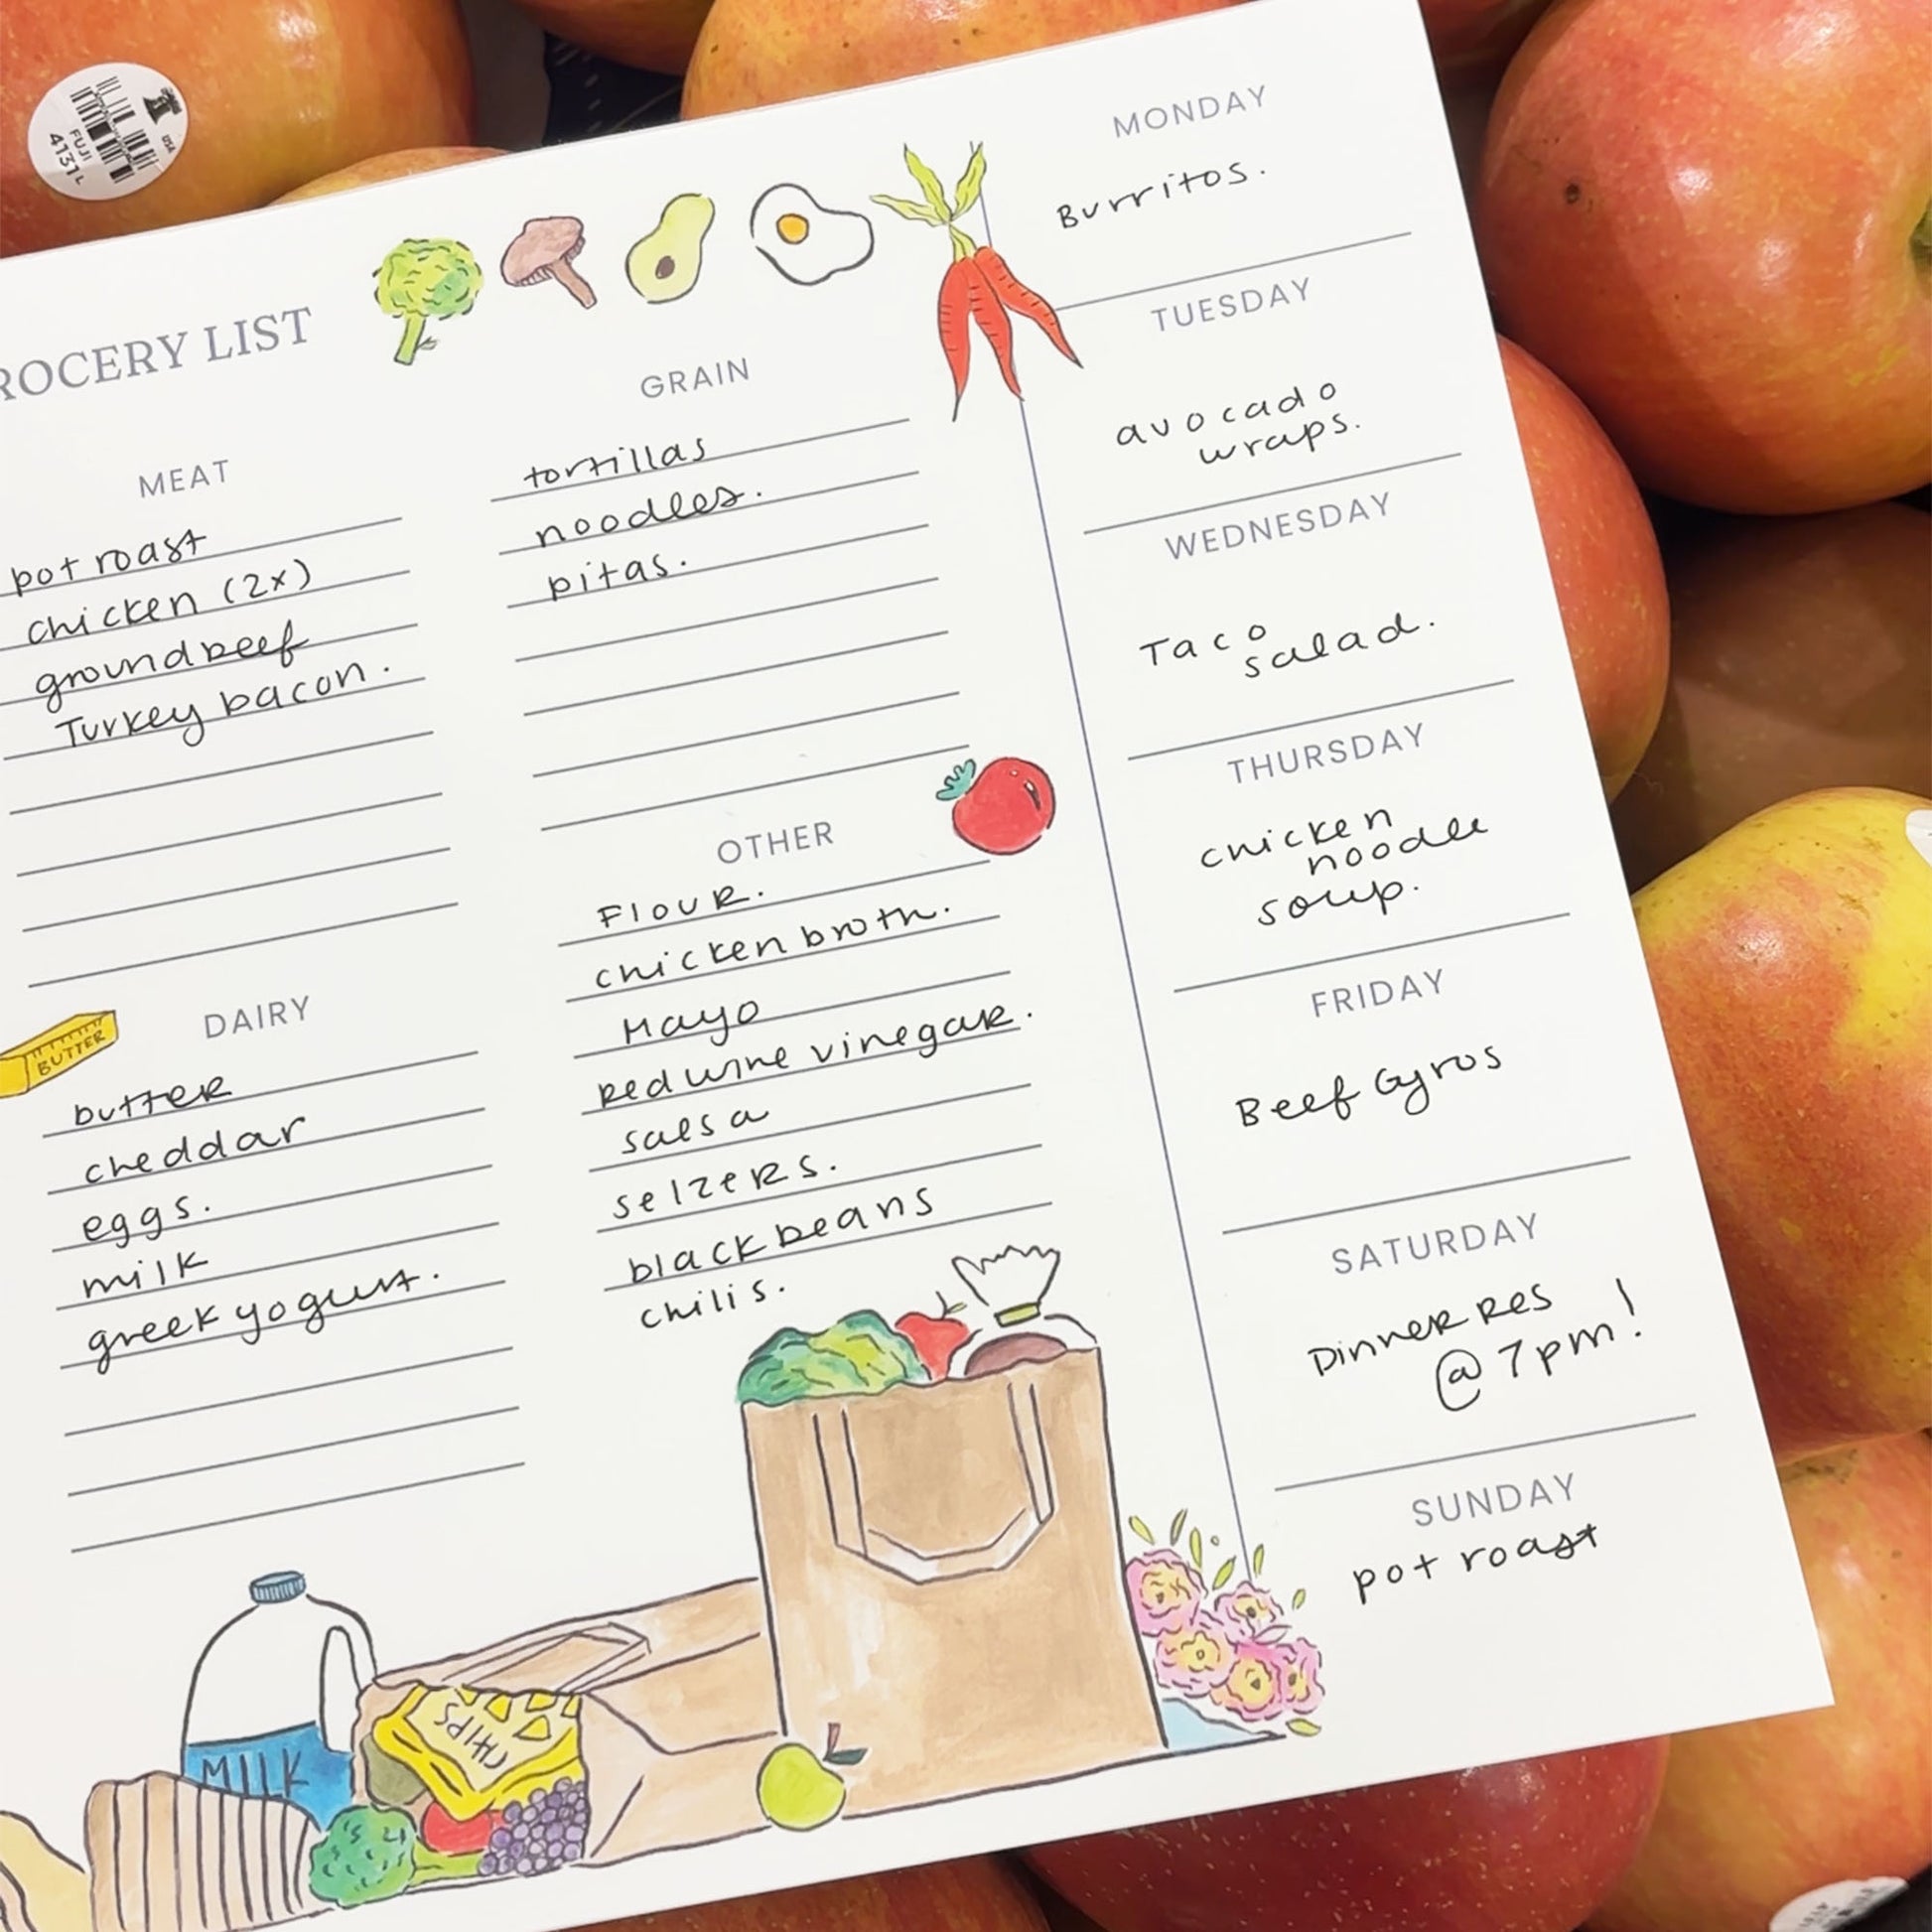 USA
FUJI
4131L
ROCERY LIST
MEAT
pot roast
chicken (2x)
ground beef
Turkey bacon.
DAIRY
BUTTER
butter
cheddar
eggs.
milk
greek yogurt.
GRAIN
tortillas
noodles.
pitas.
OTHER
Flour.
chicken broth.
Mayo
red wine vinegar.
salsa
selzers.
black beans
chilis.
MONDAY
Burritos.
TUESDAY
avocado
wraps.
WEDNESDAY
Taco
salad.
THURSDAY
chicken
noodle
soup.
FRIDAY
Beef Gyros
SATURDAY
Dinner Res
@ 7pm!
SUNDAY
pot roast
MILK
CHIPS